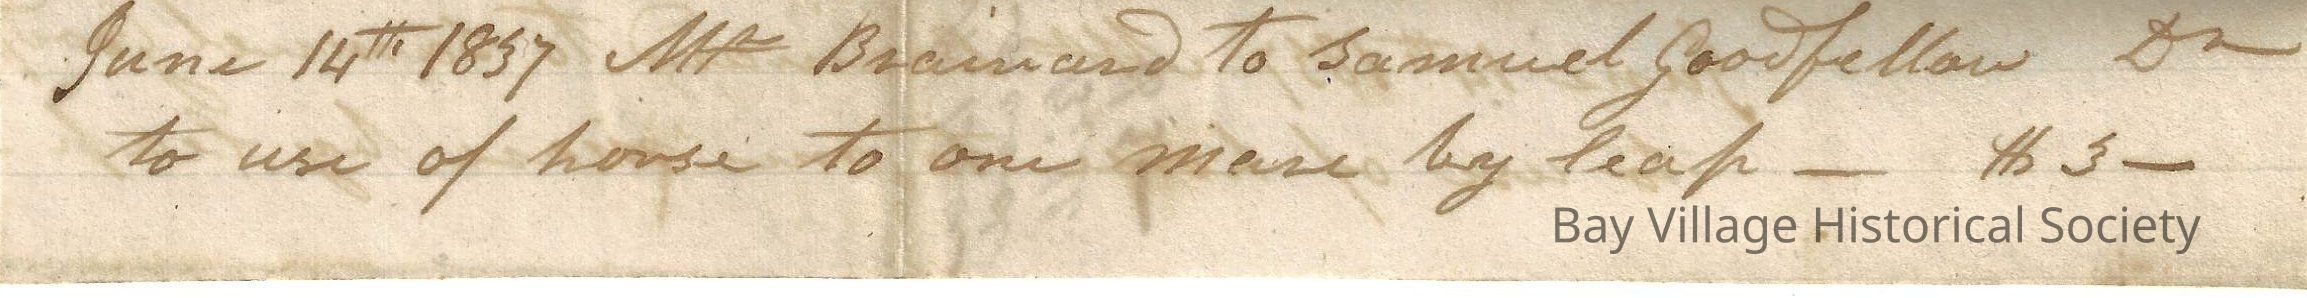 June 14th 1837 Mr Brainard to Samuel Goodfellow Dr
to use of horse to one mare by leap — $ 3 —
Bay Village Historical Society